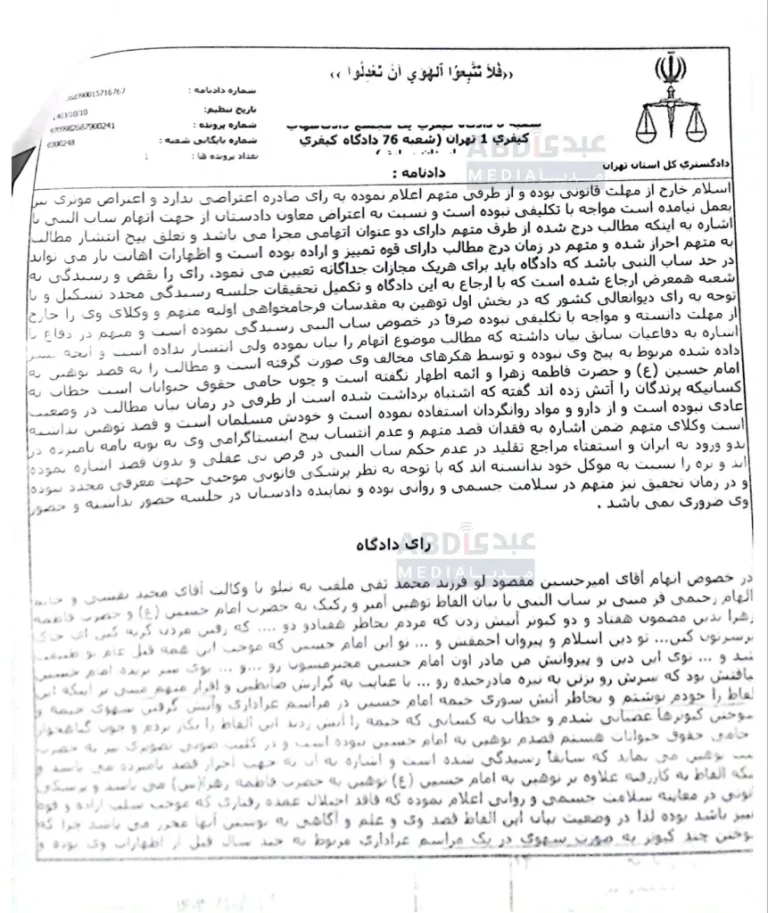 ((فَلاَ تَتَّبِعُوا الْهَوَى أَنْ تَعْدِلُوا))
شماره دادنامه :
90015716767
تاریخ تنظیم:
03/10/10
شماره پرونده :
09982687900241
شماره بایگانی شعبه :
0300248
تعداد پرونده ها :
کیفری 1 تهران (شعبه 76 دادگاه کیفری
دادگستری کل استان تهران
ABDI عبدی
MEDIA مدیا
دادنامه :
اسلام خارج از مهلت قانونی بوده و از طرفی متهم اعلام نموده به رای صادره اعتراضی ندارد و اعتراض موثری نیز
بعمل نیامده است مواجه با تکلیفی نبوده است و نسبت به اعتراض معاون دادستان از جهت اتهام ساب النبی با
اشاره به اینکه مطالب درج شده از طرف متهم دارای دو عنوان اتهامی مجزا می باشد و تعلق پیج انتشار مطالب
به متهم احراز شده و متهم در زمان درج مطالب دارای قوه تمییز و اراده بوده است و اظهارات اهانت بار می تواند
در حد ساب النبی باشد که دادگاه باید برای هریک مجازات جداگانه تعیین می نمود، رای را نقض و رسیدگی به
شعبه همعرض ارجاع شده است که با ارجاع به این دادگاه و تکمیل تحقیقات جلسه رسیدگی مجدد تشکیل و با
توجه به رای دیوانعالی کشور که در بخش اول توهین به مقدسات فرجامخواهی اولیه متهم و وکلای وی را خارج
از مهلت دانسته و مواجه با تکلیفی نبوده صرفا در خصوص ساب النبی رسیدگی نموده است و متهم در دفاع با
اشاره به دفاعیات سابق بیان داشته که مطالب موضوع اتهام را بیان نموده ولی انتشار نداده است و آنچه نشر
داده شده مربوط به پیج وی نبوده و توسط هکرهای مخالف وی صورت گرفته است و مطالب را به قصد توهین به
امام حسین (ع) و حضرت فاطمه زهرا و ائمه اظهار نگفته است و چون حامی حقوق حیوانات است خطاب به
کسانیکه پرندگان را آتش زده اند گفته که اشتباه برداشت شده است از طرفی در زمان بیان مطالب در وضعیت
عادی نبوده است و از دارو و مواد روانگردان استفاده نموده است و خودش مسلمان است و قصد توهین نداشته
است وکلای متهم ضمن اشاره به فقدان قصد متهم و عدم انتساب پیج اینستاگرامی وی به توبه نامه نامبرده در
بدو ورود به ایران و استفتاء مراجع تقلید در عدم حکم ساب النبی در فرض بی عقلی و بدون قصد اشاره نموده
اند و بزه را نسبت به موکل خود ندانسته اند که با توجه به نظر پزشکی قانونی موجبی جهت معرفی مجدد نبوده
و در زمان تحقیق نیز متهم در سلامت جسمی و روانی بوده و نماینده دادستان در جلسه حضور نداشته و حضور
وی ضروری نمی باشد .
ABDI عبدی
MEDIA مدیا
رای دادگاه
در خصوص اتهام آقای امیرحسین مقصود لو فرزند محمد تقی ملقب به تتلو با وکالت آقای مجید نقشی و خانم
الهام رحیمی فر مبنی بر ساب النبی با بیان الفاظ توهین آمیز و رکیک به حضرت امام حسین (ع) و حضرت فاطمه
زهرا بدین مضمون هفتاد و دو کبوتر آتیش زدن که مردم بخاطر هفتادو دو .... که رفتن مردن گریه کنن ای خاک
برسرتون کنن... تو دین اسلام و پیروان احمقش و ... تو این امام حسین که موجب این همه قتل عام تو طبیعت
شد و ... توی این دین و پیروانش من مادر اون امام حسین محترمتون رو ...و... توی سر بریده امام حسین
یافتش بود که سرش رو بزنن به نیزه مادرجنده رو ... با عنایت به گزارش ضابطین و اقرار متهم مبنی بر اینکه این
لفاظ را خودم نوشتم و بخاطر آتش سوزی خیمه امام حسین در مراسم عزاداری وآتش گرفتن سهوی خیمه و
سوختن کبوترها عصبانی شدم و خطاب به کسانی که خیمه را آتش زدند این الفاظ را بکار بردم و چون گیاهخوار
حامی حقوق حیوانات هستم قصدم توهین به امام حسین نبوده است و در کلیپ صوتی تصویری نیز به حضرت
توهین می نماید که سابقا رسیدگی شده است و اشاره به آن به جهت احراز قصد نامبرده می باشد و
ینکه الفاظ به کاررفته علاوه بر توهین به امام حسین (ع) توهین به حضرت فاطمه زهرا(س) می باشد و پزشکی
انونی در معاینه سلامت جسمی و روانی اعلام نموده که فاقد اختلال عمده رفتاری که موجب سلب اراده و قوه
تمییز باشد بوده لذا در وضعیت بیان این الفاظ قصد وی و علم و آگاهی به توهین آنها محرز می باشد چرا که
سوختن چند کبوتر به صورت سهوی در یک مراسم عزاداری مربوط به چند سال قبل از اظهارات وی بوده و